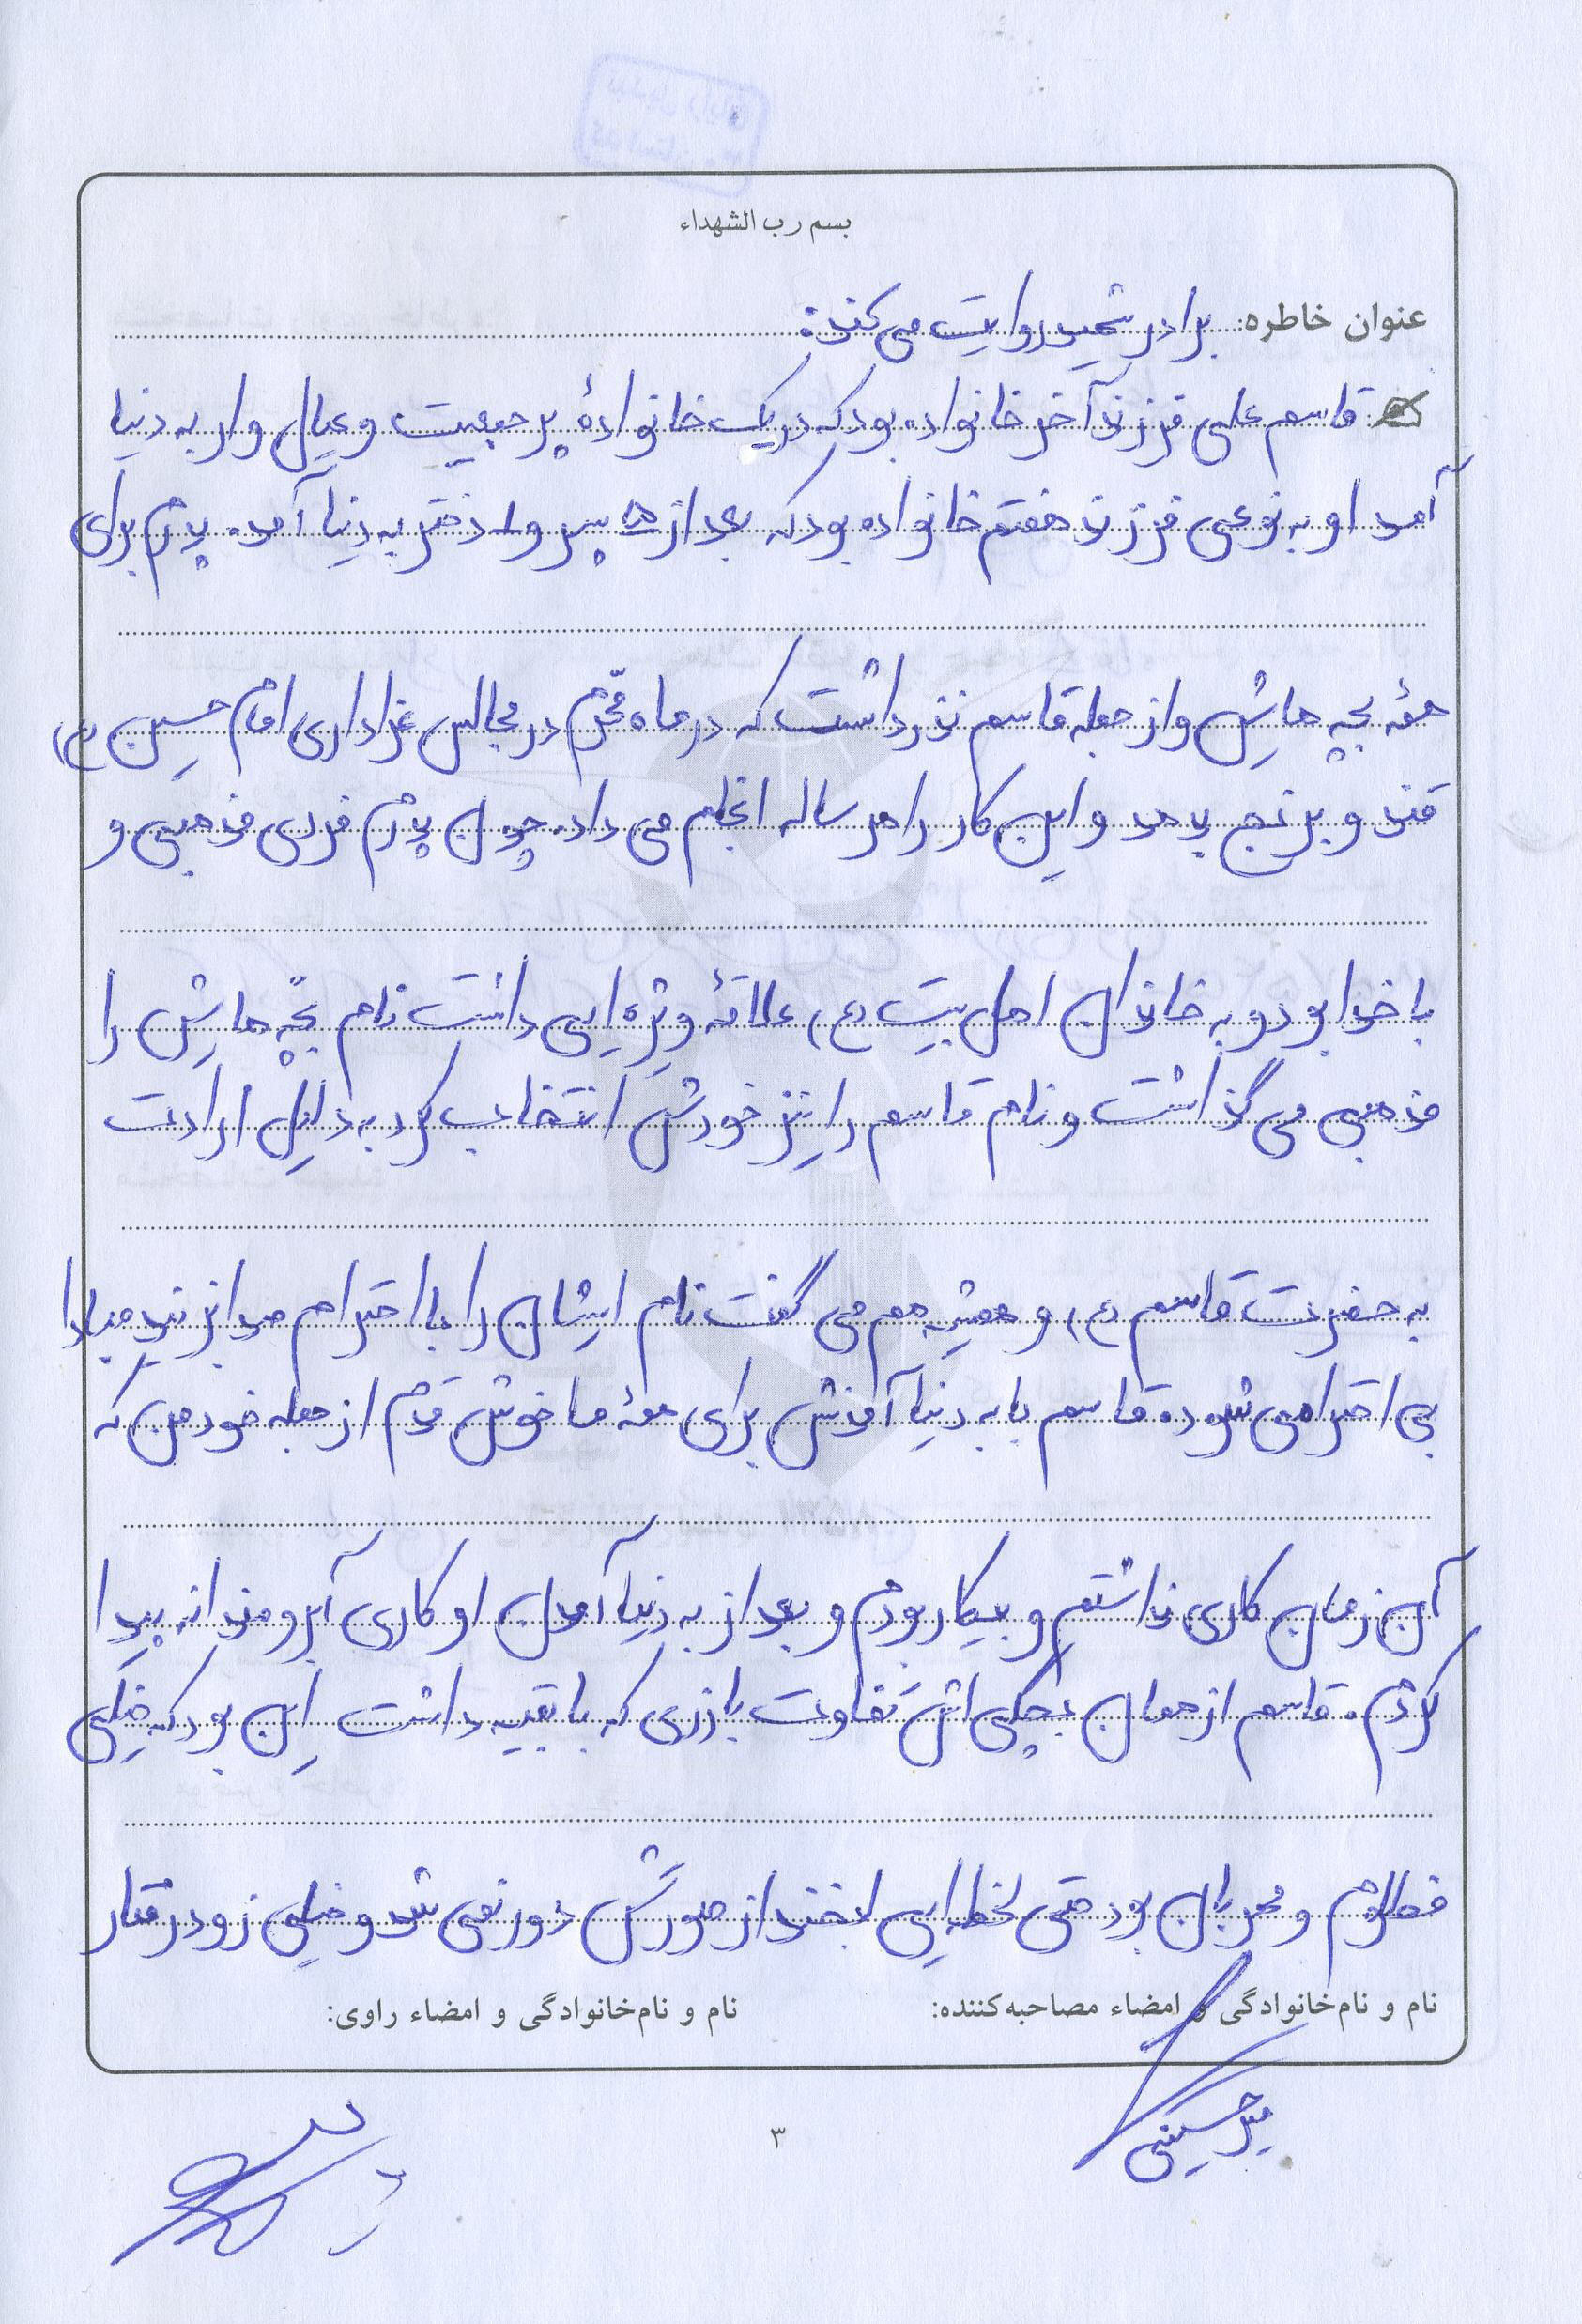 بسم رب الشهداء
عنوان خاطره: برادر شهید روایت می کند:
قاسم علی فرزند آخر خانواده بود که در یک خانوادهٔ پر جمعیت و عیال وار به دنیا
آمد او به نوعی فرزند هفتم خانواده بود که بعد از ۵ پسر و ۱ دختر به دنیا آمد. پدرم برای
همهٔ بچه هایش و از جمله قاسم نذر داشت که در ماه محّرم در مجالس عزاداری امام حسین (ع)
قند و برنج بدهد و این کار را هر ساله انجام می داد. چون پدرم فردی مذهبی و
با خدا بود و به خاندان اهل بیت (ع) علاقهٔ ویژه ایی داشت نام بچّه هایش را
مذهبی می گذاشت و نام قاسم را نیز خودش انتخاب کرد به دلیل ارادت
به حضرت قاسم (ع) و همیشه هم می گفت نام ایشان را با احترام صدا بزنید مبادا
بی احترامی شود. قاسم با به دنیا آمدنش برای همهٔ ما خوش قدم از جمله خود من که
آن زمان کاری نداشتم و بیکار بودم و بعد از به دنیا آمدن او کاری آبرومندانه پیدا
کردم. قاسم از همان بچگی اش تفاوت بارزی که با بقیه داشت این بود که خیلی
مظلوم و مهربان بود حتی لحظه ایی لبخند از صورتش دور نمی شد و خیلی زود رفتار
نام و نام‌خانوادگی و امضاء مصاحبه‌کننده:
نام و نام‌خانوادگی و امضاء راوی:
میرحسینی
۳